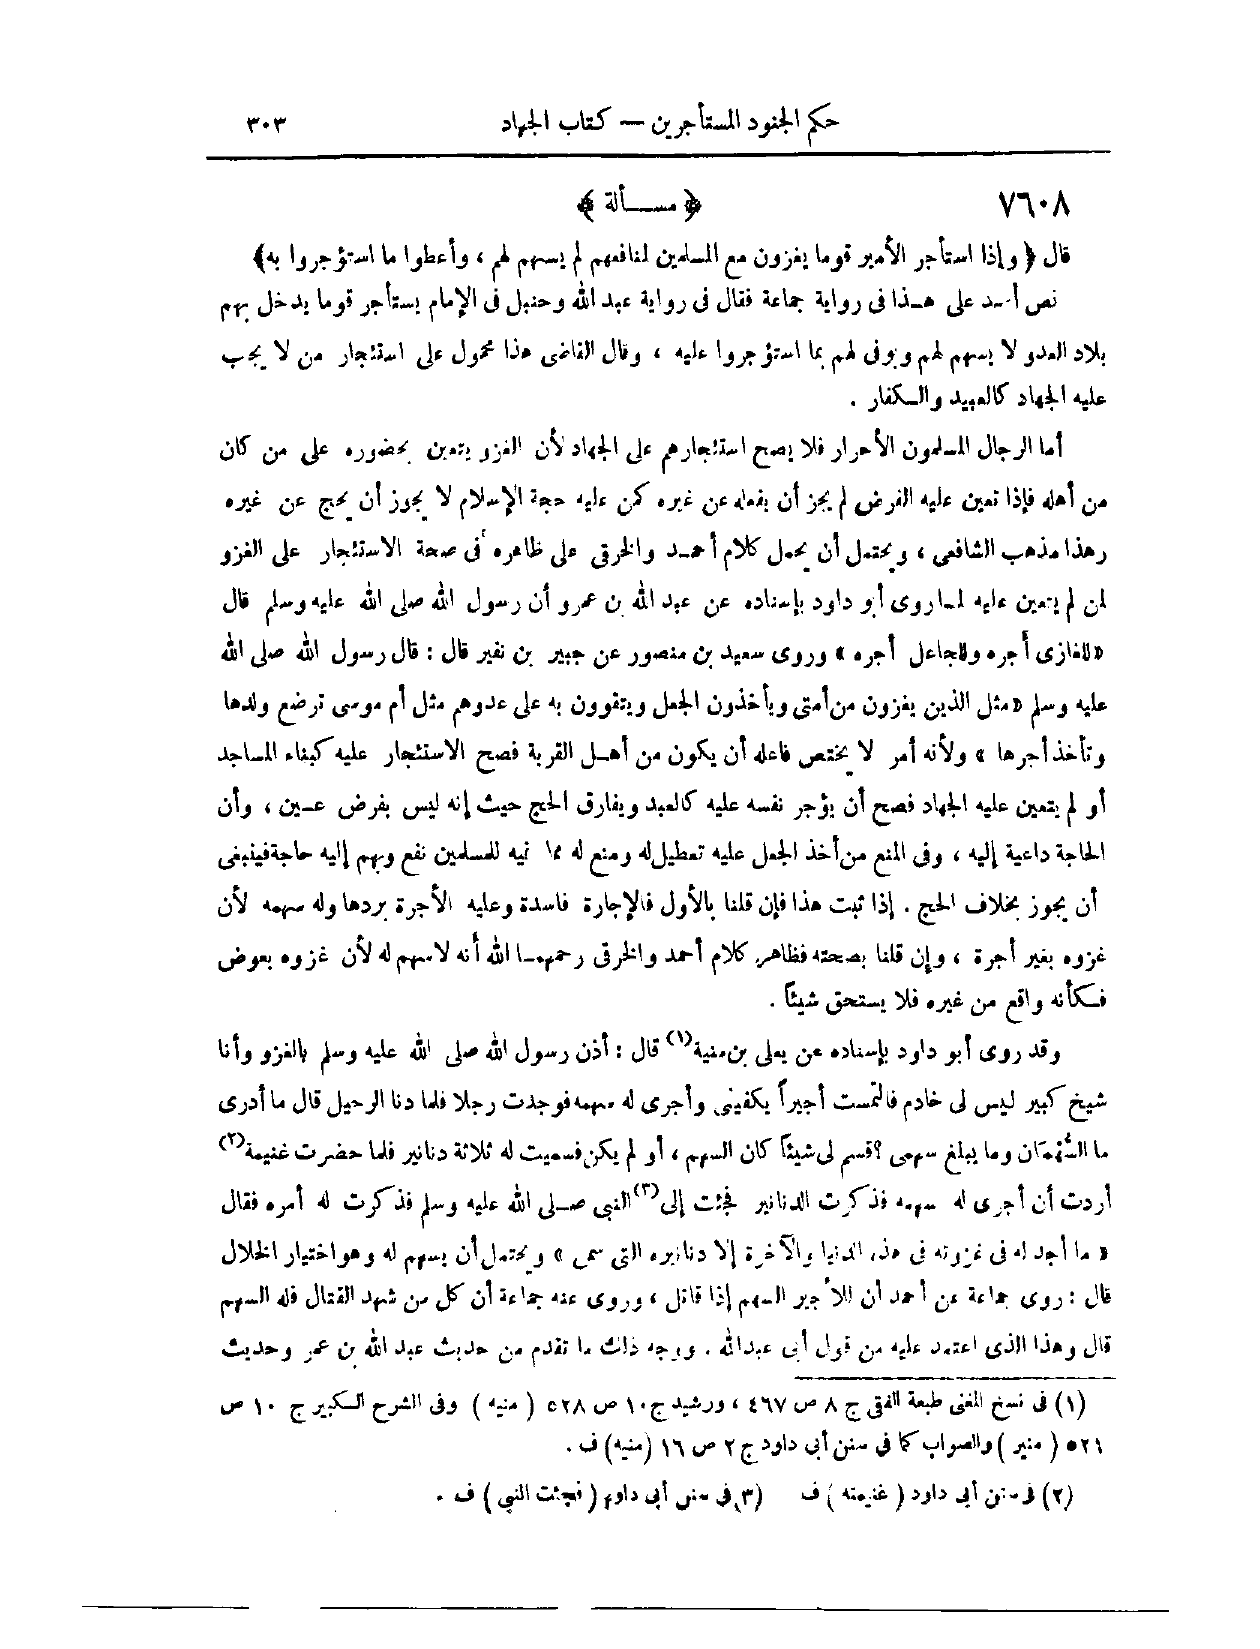 حكم الجنود المستأجرين — كتاب الجهاد ٣٠٣
٧٦٠٨ ﴿ مسـألة ﴾
قال ﴿ وإذا استأجر الأمير قوما يغزون مع المسلمين لمنافعهم لم يسهم لهم ، وأعطوا ما استؤجروا به﴾
نص أحمد على هـذا فى رواية جماعة فقال فى رواية عبد الله وحنبل فى الإمام يستأجر قوما يدخل بهم
بلاد العدو لا يسهم لهم ويوفى لهم بما استؤجروا عليه ، وقال القاضى هذا محمول على استئجار من لا يجب
عليه الجهاد كالعبيد والـكفار .
أما الرجال المسلمون الأحرار فلا يصح استئجارهم على الجهاد لأن الغزو يتعين بحضوره على من كان
من أهله فإذا تعين عليه الفرض لم يجز أن يفعله عن غيره كمن عليه حجة الإسلام لا يجوز أن يحج عن غيره
وهذا مذهب الشافعى ، ويحتمل أن يحمل كلام أحمـد والخرقى على ظاهره فى صحة الاستئجار على الغزو
لمن لم يتعين عليه لمـا روى أبو داود بإسناده عن عبد الله بن عمرو أن رسول الله صلى الله عليه وسلم قال
«للغازى أجره وللجاعل أجره » وروى سعيد بن منصور عن جبير بن نفير قال : قال رسول الله صلى الله
عليه وسلم «مثل الذين يغزون من أمتى ويأخذون الجعل ويتقوون به على عدوهم مثل أم موسى ترضع ولدها
وتأخذ أجرها » ولأنه أمر لا يختص فاعله أن يكون من أهـل القربة فصح الاستئجار عليه كبناء المساجد
أو لم يتعين عليه الجهاد فصح أن يؤجر نفسه عليه كالعبد ويفارق الحج حيث إنه ليس بفرض عـين ، وأن
الحاجة داعية إليه ، وفى المنع من أخذ الجعل عليه تعطيل له ومنع له مما فيه للمسلمين نفع وبهم إليه حاجة فينبغى
أن يجوز بخلاف الحج . إذا ثبت هذا فإن قلنا بالأول فالإجارة فاسدة وعليه الأجرة بردها وله سهمه لأن
غزوه بغير أجرة ، وإن قلنا بصحته فظاهر كلام أحمد والخرقى رحمهمـا الله أنه لا سهم له لأن غزوه بعوض
فـكأنه واقع من غيره فلا يستحق شيئاً .
وقد روى أبو داود بإسناده عن يعلى بن منية(١) قال : أذن رسول الله صلى الله عليه وسلم بالغزو وأنا
شيخ كبير ليس لى خادم فالتمست أجيراً يكفينى وأجرى له سهمه فوجدت رجلا فلما دنا الرحيل قال ما أدرى
ما السُّهْمَان وما يبلغ سهمى ؟ فسم لى شيئاً كان السهم ، أو لم يكن فسميت له ثلاثة دنانير فلما حضرت غنيمة(٢)
أردت أن أجرى له سهمه فذكرت الدنانير فجئت إلى(٣) النبى صـلى الله عليه وسلم فذكرت له أمره فقال
« ما أجد له فى غزوته فى هذه الدنيا والآخرة إلا دنانيره التى سمى » ويحتمل أن يسهم له وهو اختيار الخلال
قال : روى جماعة عن أحمد أن للأجير السهم إذا قاتل ، وروى عنه جماعة أن كل من شهد القتال فله السهم
قال وهذا الذى اعتمد عليه من قول أبى عبدالله . ووجه ذلك ما تقدم من حديث عبد الله بن عمر وحديث
(١) فى نسخ المغنى طبعة الفقى ج ٨ ص ٤٦٧ ، ورشيد ج١٠ ص ٥٢٨ ( منيه ) وفى الشرح الـكبير ج ١٠ ص
٥٢١ ( منير ) والصواب كما فى سنن أبى داود ج ٢ ص ١٦ (منيه) ف .
(٢) فى سنن أبى داود ( غنيمته ) ف (٣) فى سنن أبى داود ( فجئت النبى ) ف .